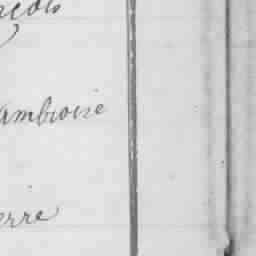 ambroise
erre